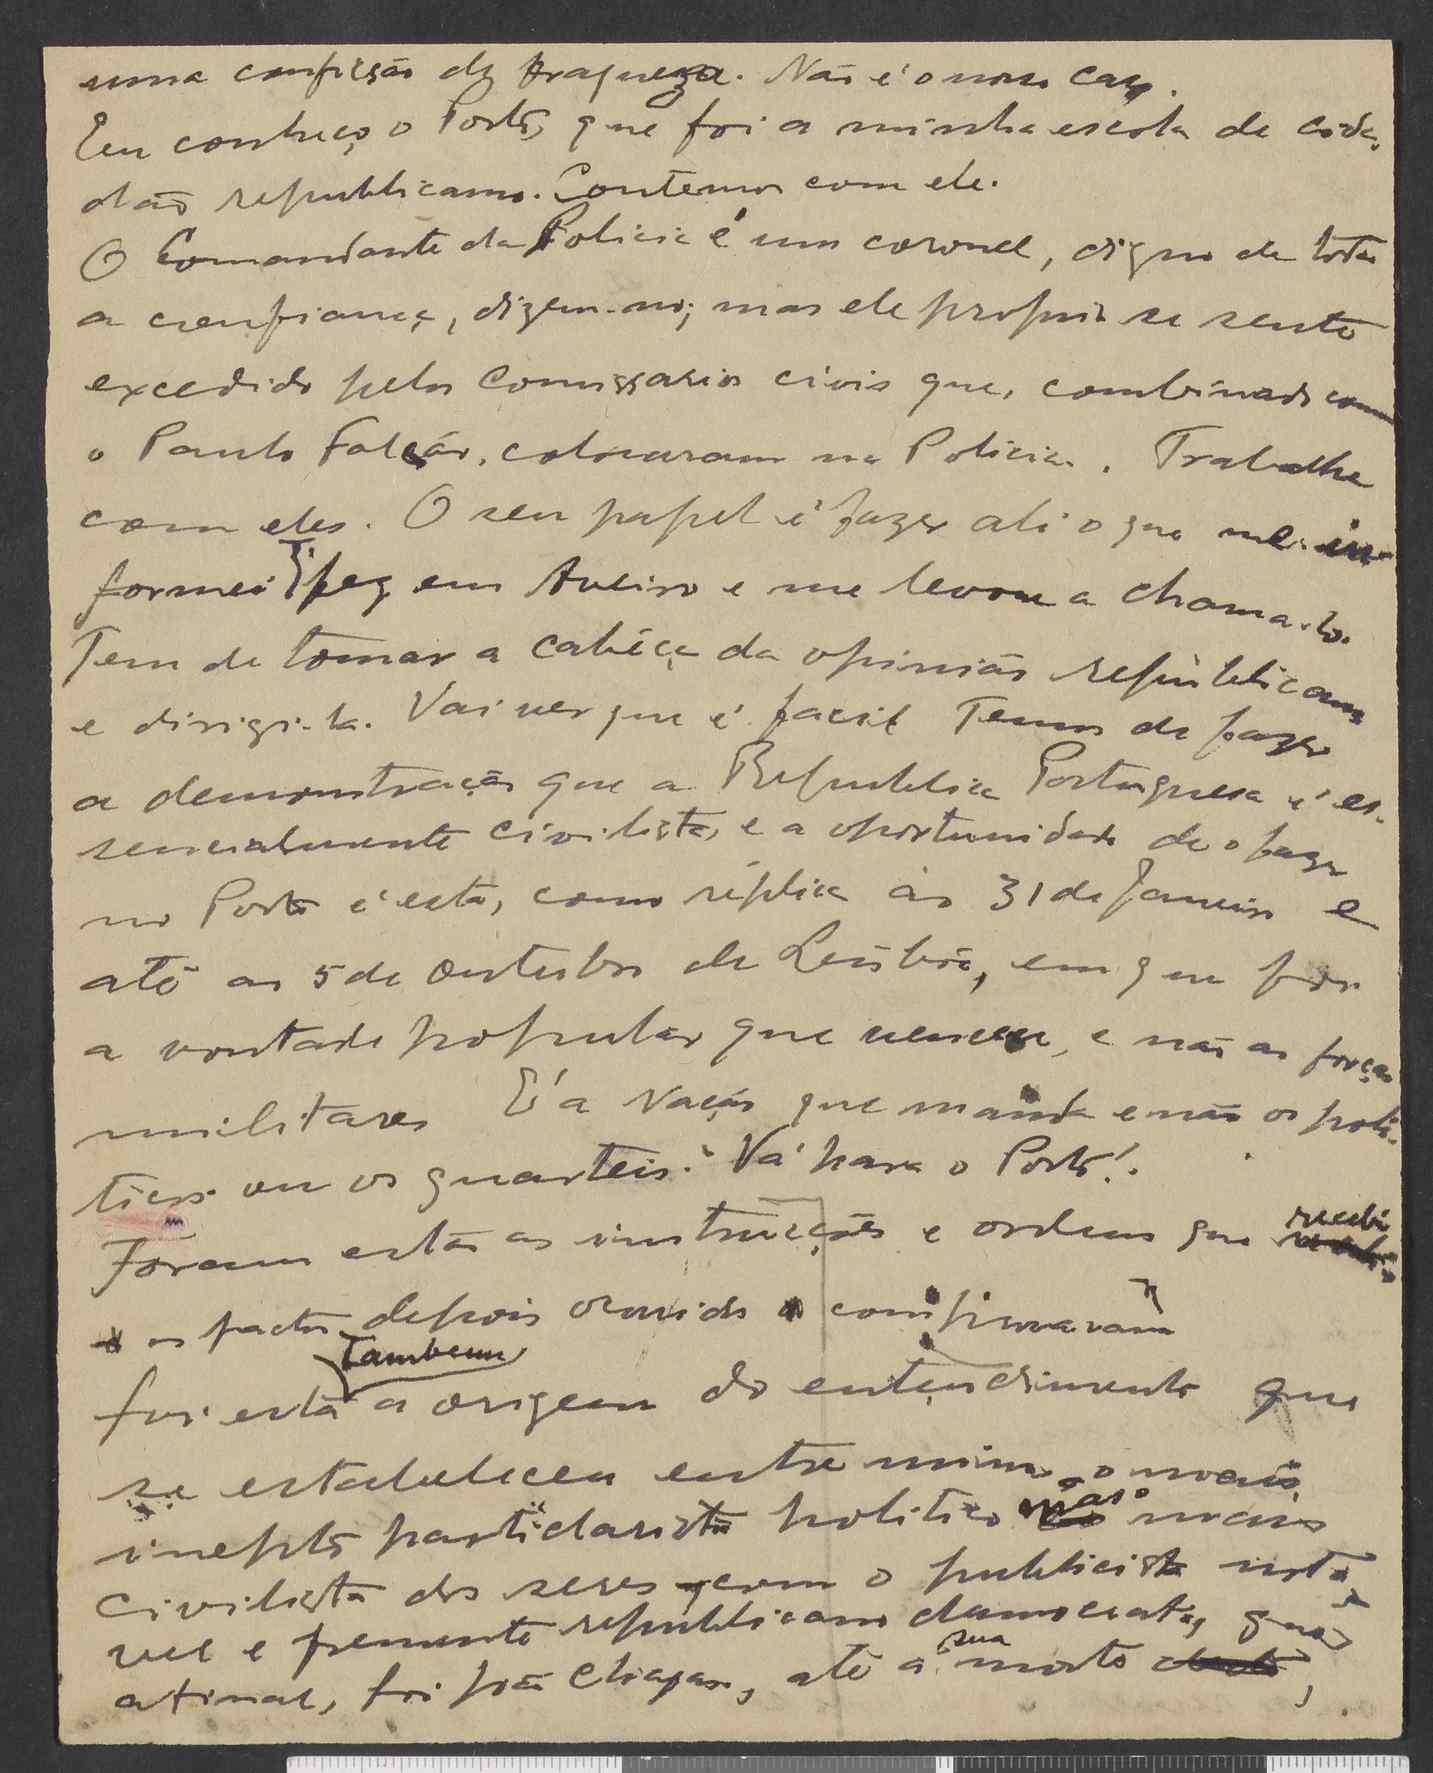 uma confissão de fraqueza. Não é o nosso caso.
Eu conheço o Porto, que foi a minha escola de cida-
dão republicano. Contemos com ele.
O Comandante da Policia é um coronel, digno de toda
a confiança, dizem-no; mas ele proprio se sente
excedido pelos Comissarios civis que, combinado com
o Paulo Falcão, colocaram na Policia. Trabalhe
com eles. O seu papel é fazer ali o que me in-
formei fez em Aveiro e me levou a chama-lo.
Tem de tomar a cabéça da opinião republicana
e dirigi-la. Vai ver que é facil Temos de fazer
a demonstração que a Republica Portuguesa é es-
sencialmente civilista, e a oportunidade de o fazer
no Porto é esta, como réplica ao 31 de Janeiro e
até ao 5 de outubro de Lisbôa, em que foi
a vontade popular que venceu, e não as forças
militares É a Nação que manda e não os poli-
ticos ou os quarteis. Vá para o Porto!.
Foram estas as instrucções e ordens que recebi
e os factos depois ocorridos confirmaram
foi esta tambem a origem do entendimento que
se estabeleceu entre mim, o mais
inepto partidarista politico mas o mais
civilista dos seres com o publicista notá-
vel e fremente republicano democrata, que
afinal, foi João Chagas, até á sua morte,